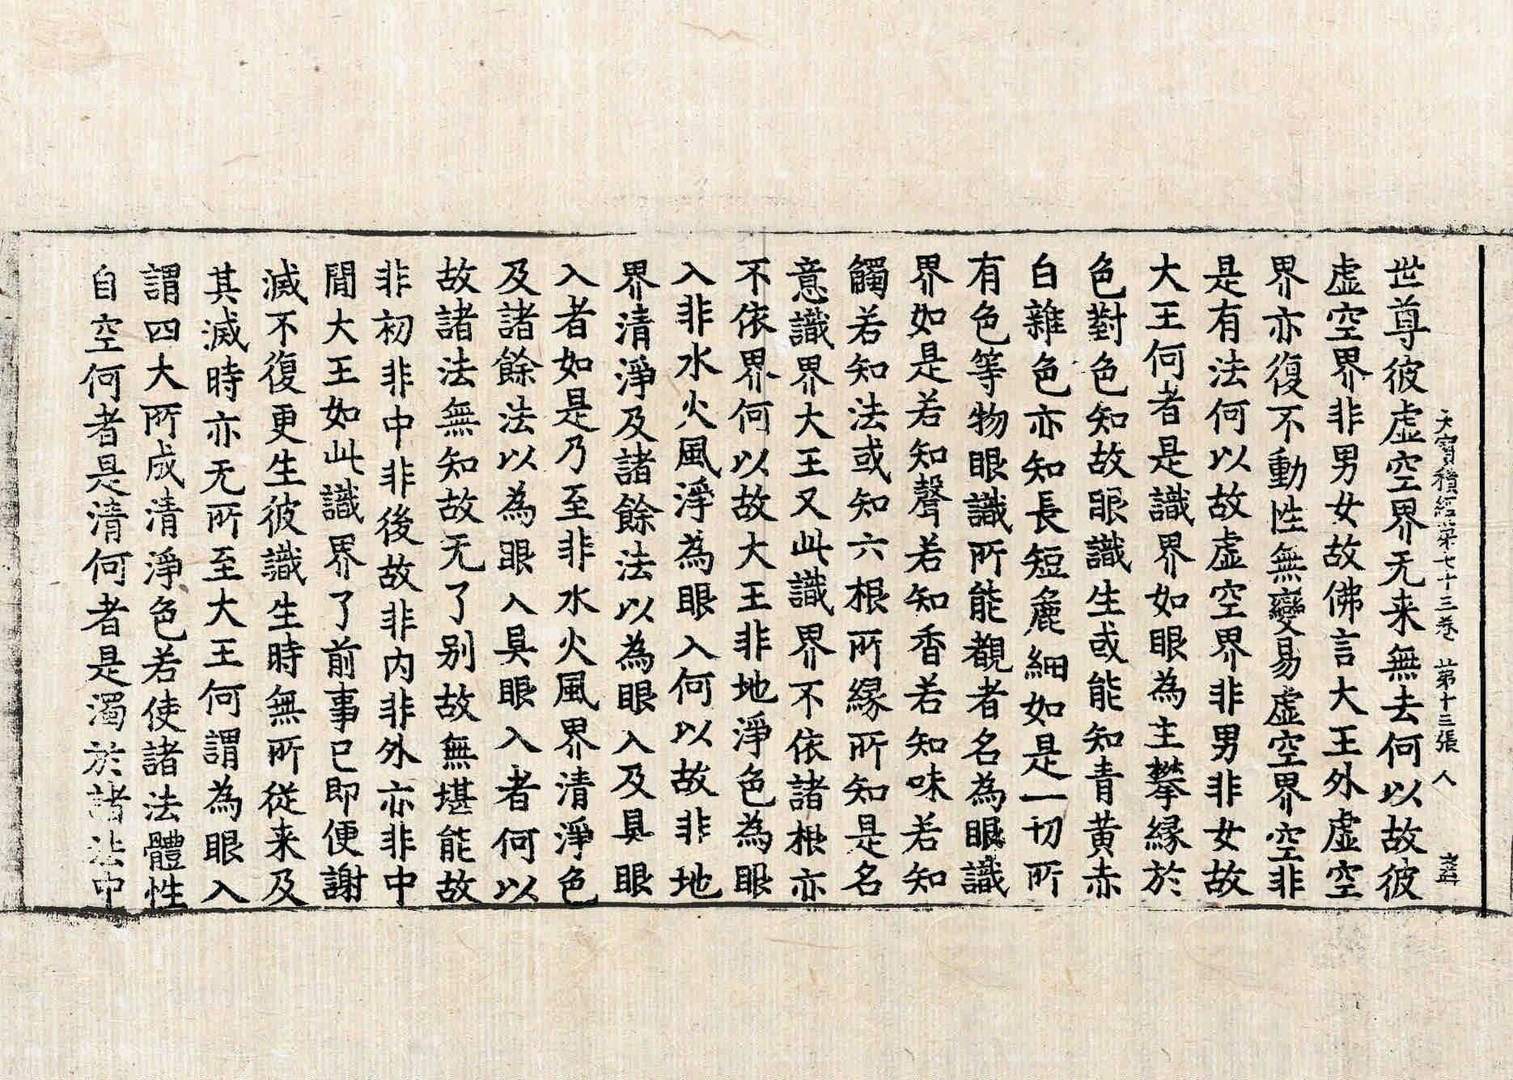 大寶積經第七十三卷 第十三張 人
世尊彼虛空界无来無去何以故彼
虛空界非男女故佛言大王外虛空
界亦復不動性無變易虛空界空非
是有法何以故虛空界非男非女故
大王何者是識界如眼為主攀緣於
色對色知故眼識生或能知青黃赤
白雜色亦知長短麁細如是一切所
有色等物眼識所能覩者名為眼識
界如是若知聲若知香若知味若知
觸若知法或知六根所緣所知是名
意識界大王又此識界不依諸根亦
不依界何以故大王非地淨色為眼
入非水火風淨為眼入何以故非地
界清淨及諸餘法以為眼入及具眼
入者如是乃至非水火風界清淨色
及諸餘法以為眼入具眼入者何以
故諸法無知故无了別故無堪能故
非初非中非後故非內非外亦非中
間大王如此識界了前事已即便謝
滅不復更生彼識生時無所從来及
其滅時亦无所至大王何謂為眼入
謂四大所成清淨色若使諸法體性
自空何者是清何者是濁於諸法中